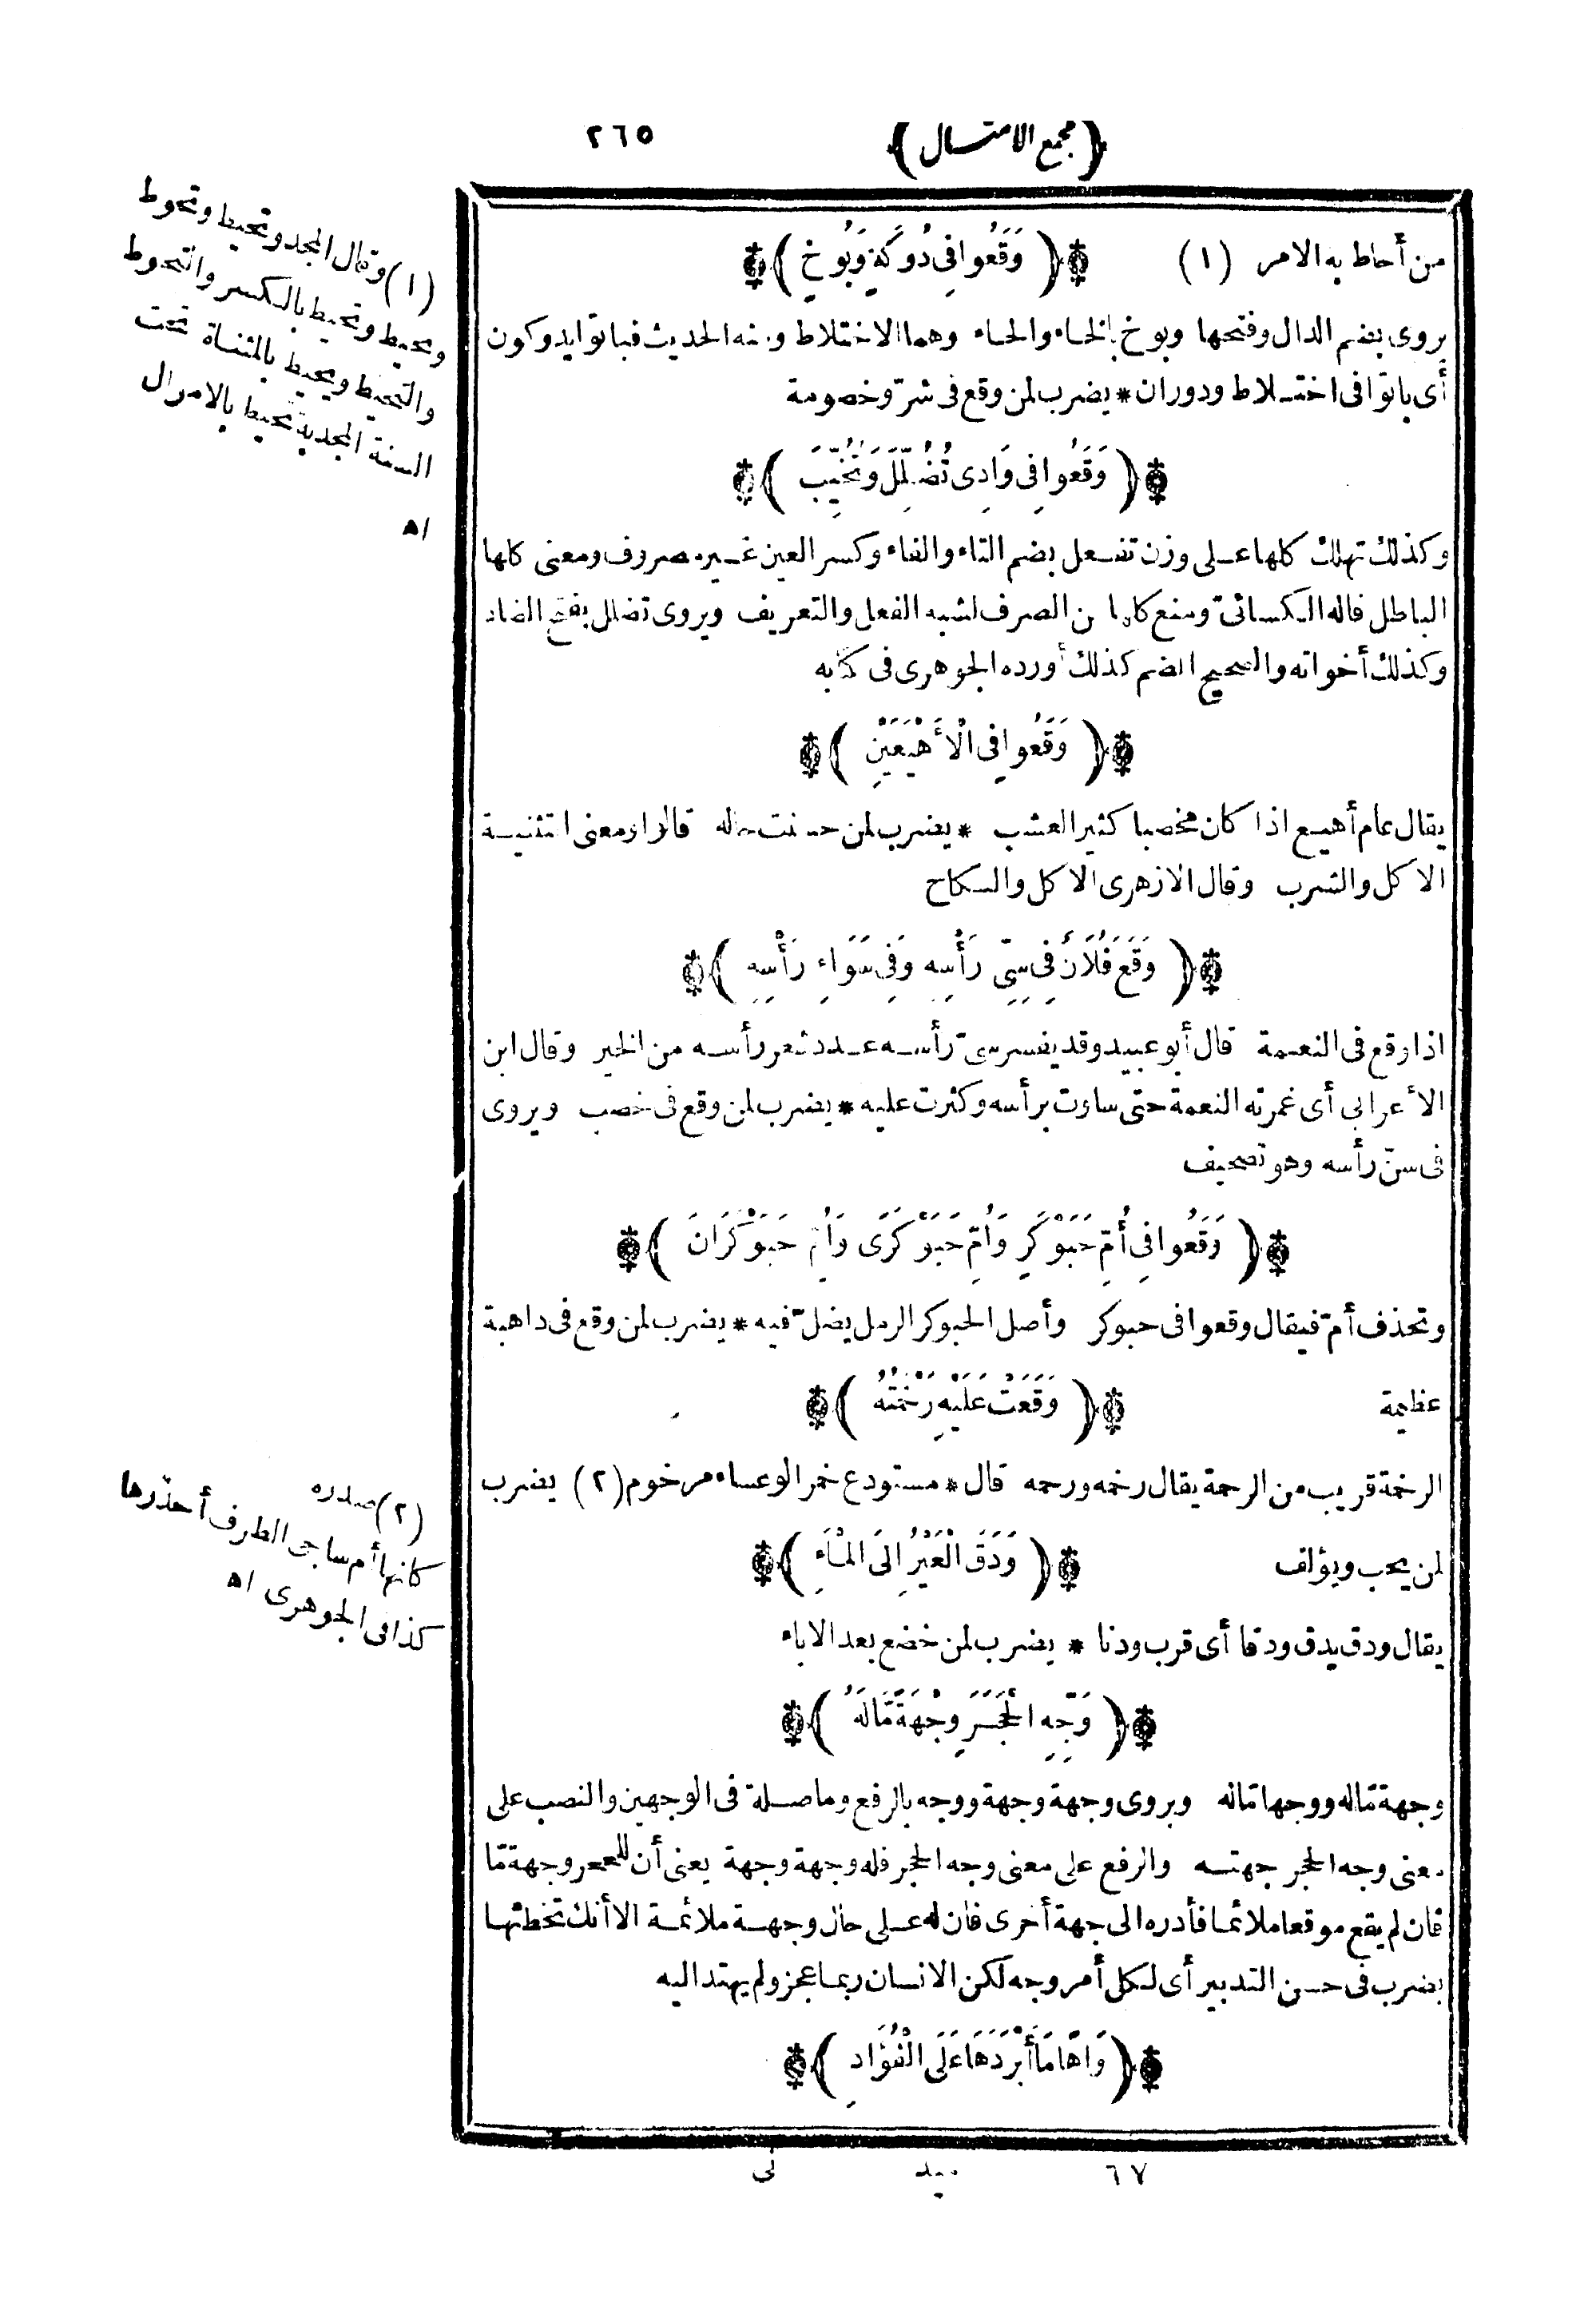 ﴿مجمع الامثال﴾ ٢٦٥
من أحاط به الامر (١) ﴿ وَقَعُوا فِي دُوكَةٍ وَبُوخٍ ﴾
يروى بضم الدال وفتحها وبوخ بالخاء والحاء وهما الاختلاط ومنه الحديث فباتوا يدوكون
أى باتوا فى اختــلاط ودوران * يضرب لمن وقع فى شرّ وخصومة
﴿ وَقَعُوا فِى وَادِى تُضُلِّلَ وَتُخُيِّبَ ﴾
وكذلك تهلك كلها عــلى وزن تفــعل بضم التاء والفاء وكسر العين غــير مصروف ومعنى كلها
الباطل قاله الكسائىّ ومنع كلها من الصرف لشبه الفعل والتعريف ويروى تضلل بفتح الضاد
وكذلك أخواته والصحيح الضم كذلك أورده الجوهرى فى كتابه
﴿ وَقَعُوا فِى الْأَهْيَغَيْنِ ﴾
يقال عام أهيــغ اذا كان مخصبا كثير العشب * يضرب لمن حسنت حاله قالوا ومعنى التثنيــة
الاكل والشرب وقال الازهرى الاكل والنكاح
﴿ وَقَعَ فُلَانٌ فِى سِىِّ رَأْسِهِ وَفِى سَوَاءِ رَأْسِهِ ﴾
اذا وقع فى النعــمة قال أبو عبيد وقد يفسر سىّ رأســه عــدد شعر رأســه من الخير وقال ابن
الأعرابى أى غمرته النعمة حتى ساوت برأسه وكثرت عليه * يضرب لمن وقع فى خصب ويروى
فى سنّ رأسه وهو تصحيف
﴿ وَقَعُوا فِى أُمِّ حَبَوْكَرٍ وَأُمِّ حَبَوْكَرَى وَأُمِّ حَبَوْكَرَانَ ﴾
وتحذف أمّ فيقال وقعوا فى حبوكر وأصل الحبوكر الرمل يضلّ فيه * يضرب لمن وقع فى داهية
عظيمة ﴿ وَقَعَتْ عَلَيْهِ رَخْمَتُهُ ﴾
الرخمة قريب من الرحمة يقال رخمه ورحمه قال * مستودع خمر الوعساء مرخوم (٢) يضرب
لمن يحب ويؤلف ﴿ وَدَقَ الْعَيْرُ إِلَى الْمَاءِ ﴾
يقال ودق يدق ودقا أى قرب ودنا * يضرب لمن خضع بعد الاباء
﴿ وَجِّهِ الْحَجَرَ وِجْهَةً مَّا لَهُ ﴾
وجهة مّا له ووجها مّا له ويروى وجهة وجهة ووجه بالرفع وما صــلة فى الوجهين والنصب على
معنى وجه الحجر جهتــه والرفع على معنى وجه الحجر فله وجهة وجهة يعنى أن للحجر وجهة مّا
فان لم يقع موقعا ملائما فأدره الى جهة أخرى فان له عــلى حال وجهــة ملائمــة الا أنك تخطئهــا
يضرب فى حسن التدبير أى لكل أمر وجه لكن الانسان ربما عجز ولم يهتد اليه
﴿ وَاهًا مَا أَبْرَدَهَا عَلَى الْفُؤَادِ ﴾
٦٧ ميد نى
(١) وقال المجد وتحيط وتحوط
وتحيط وتحيط بالكسر والتحوط
والتحيط ويحيط بالمثناة تحت
السنة المجدبة تحيط بالاموال
اه
(٢) صدره
كانها أم ساجى الطرف أخذرها
كذا فى الجوهرى اه